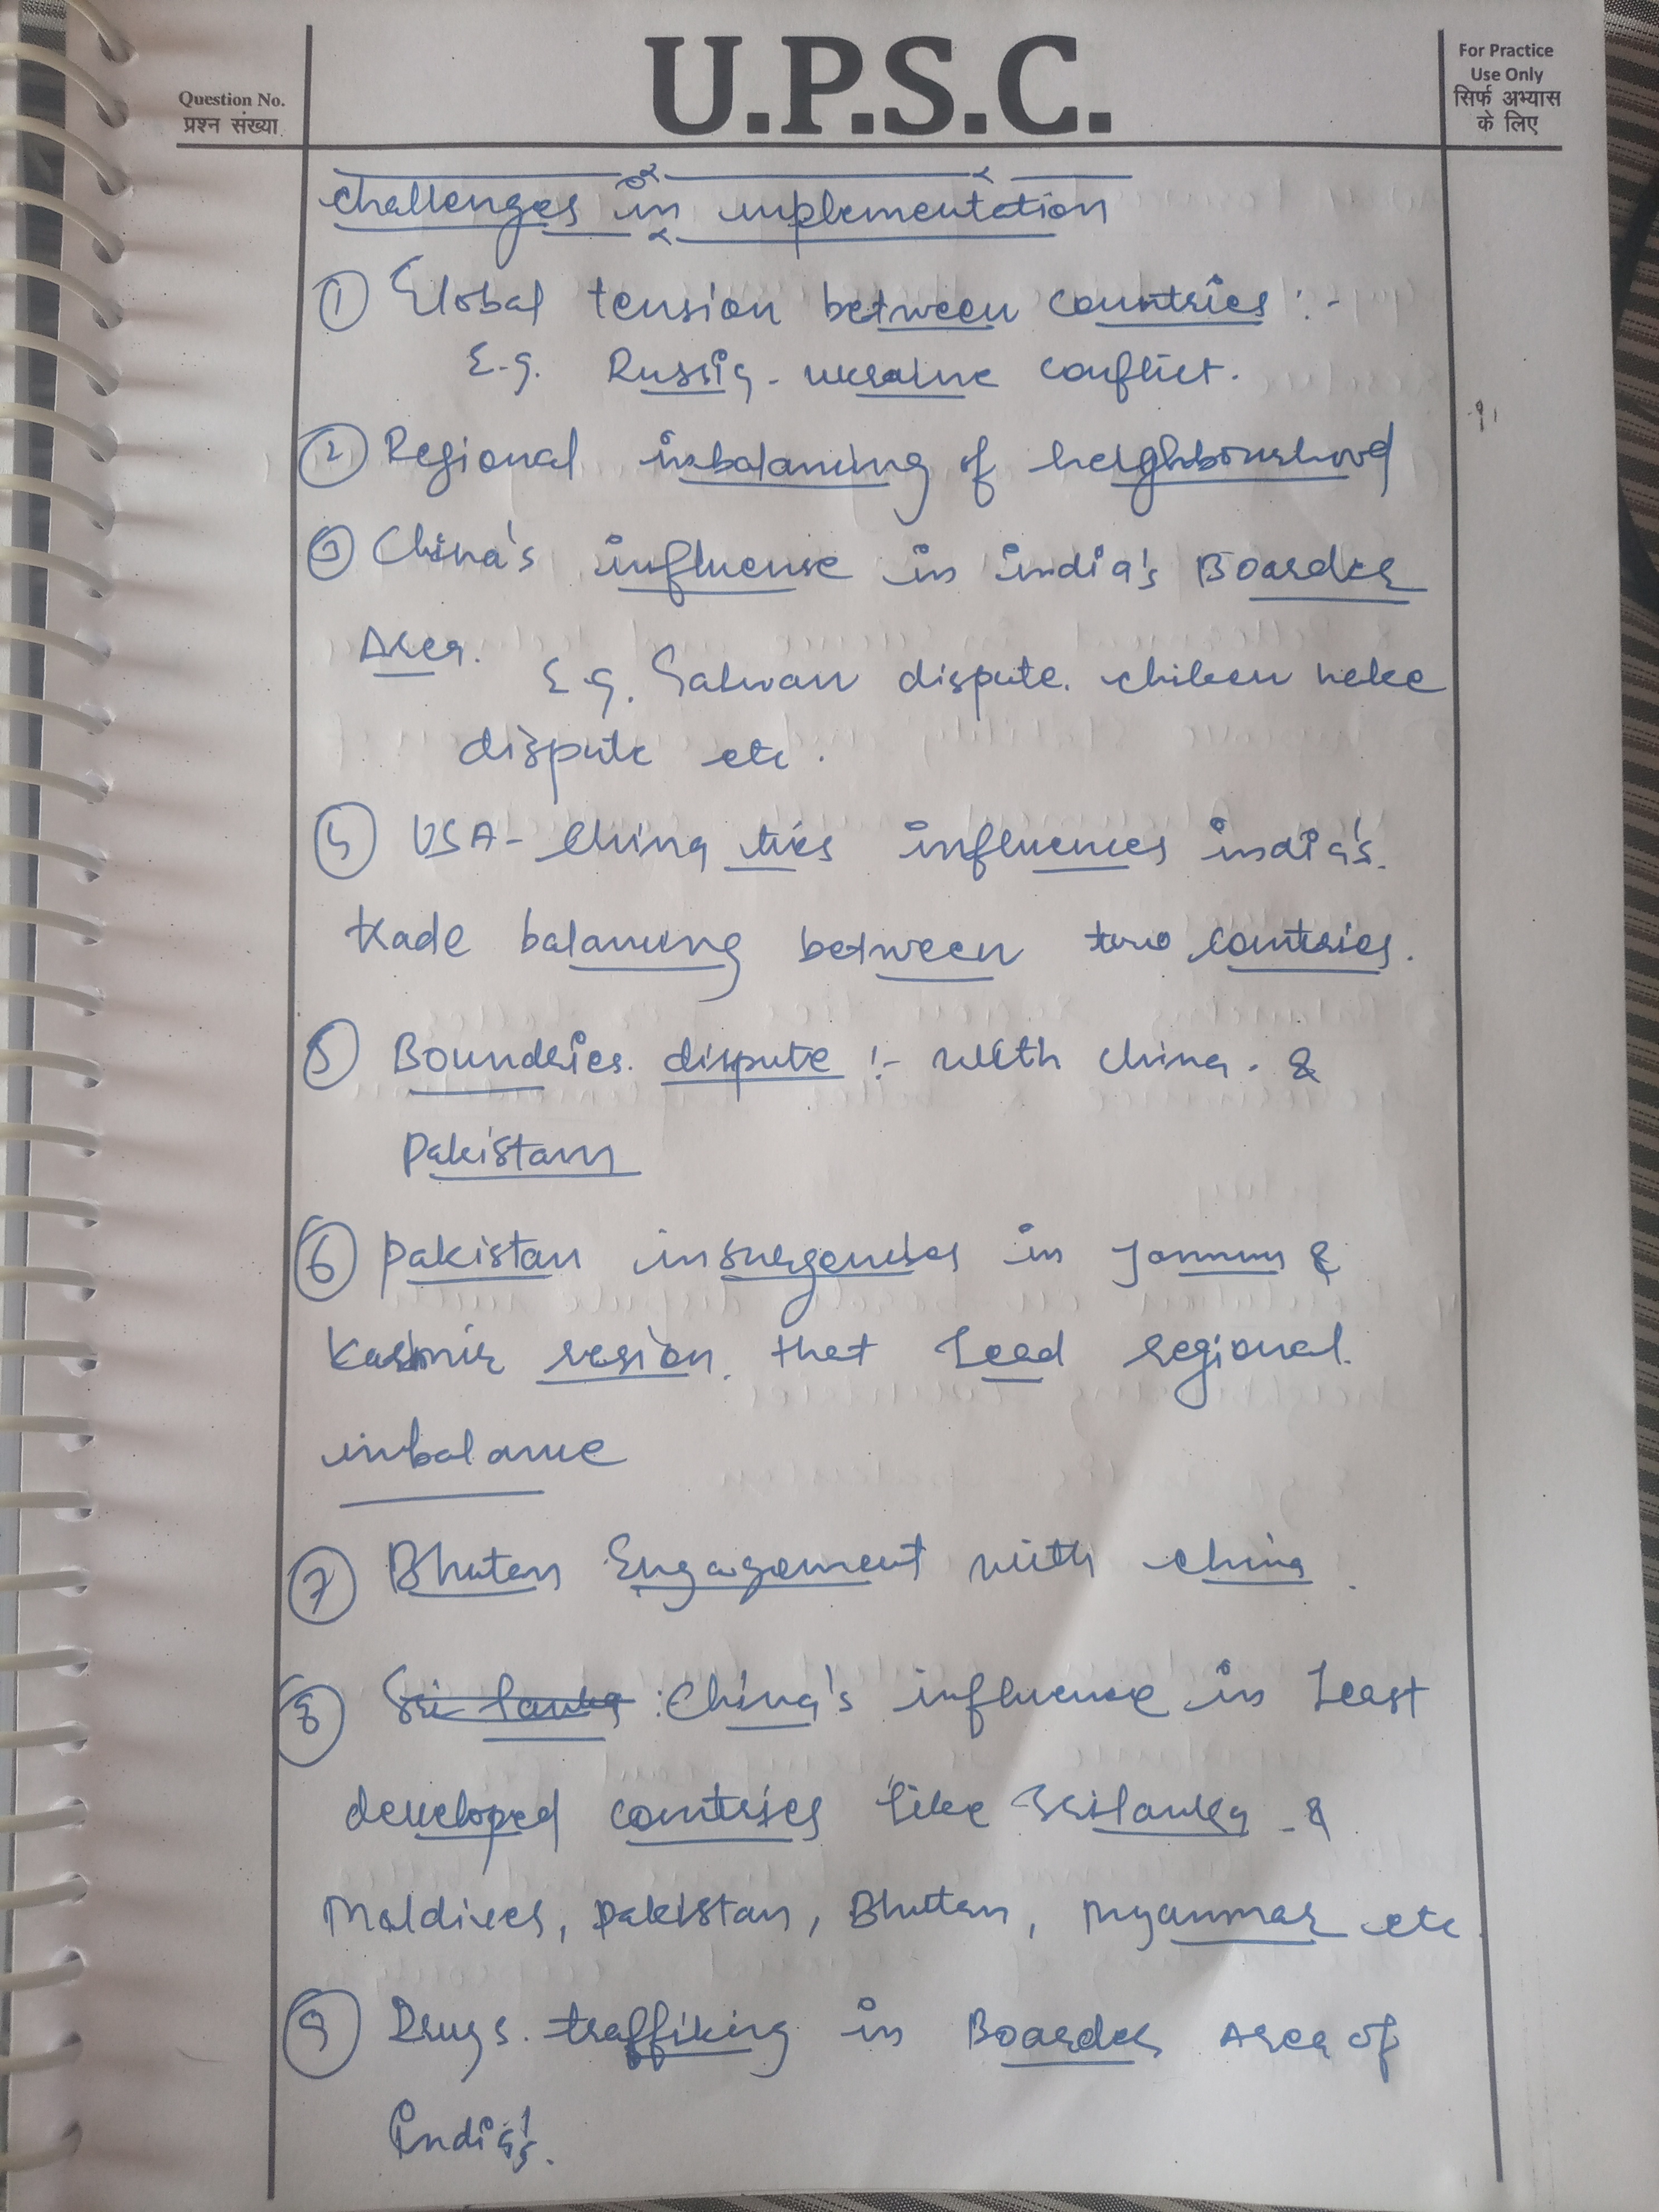 U.P.S.C.
Question No.
प्रश्न संख्या
For Practice
Use Only
सिर्फ अभ्यास
के लिए
challenges in implementation
① Global tension between countries :-
E.g. Russia - ukraine conflict.
② Regional inbalancing of neighbourhood
③ China's influense in india's Boarder
Area. E.g. Galwan dispute. chiken neke
dispute etc.
④ USA - China ties influences india's.
trade balancing between two countries.
⑤ Boundries. dispute :- with china. &
Pakistan
⑥ Pakistan insurgencies in Jammu &
Kashmir resion. that Lead regional.
inbalance
⑦ Bhutan Engagement with china.
⑧ Sri lanka : China's influence in Least
developed countries like Srilanka - &
Maldives, pakistan, Bhutan, Myanmar etc.
⑨ Drugs. traffiking in Boarder Area of
India's.